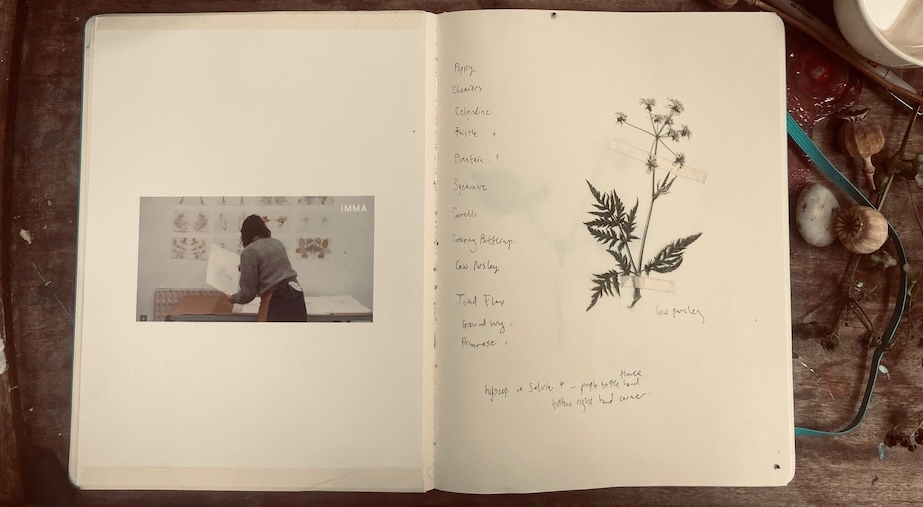 IMMA
Poppy
Cleavers
Celandine
Thistle "
Plantain "
Sycamore
Sorrel
Creeping Buttercup.
Cow Parsley
Toad Flax
Ground Ivy.
Primrose
Cow parsley
hyssop or Salvia
bottom right hand corner.